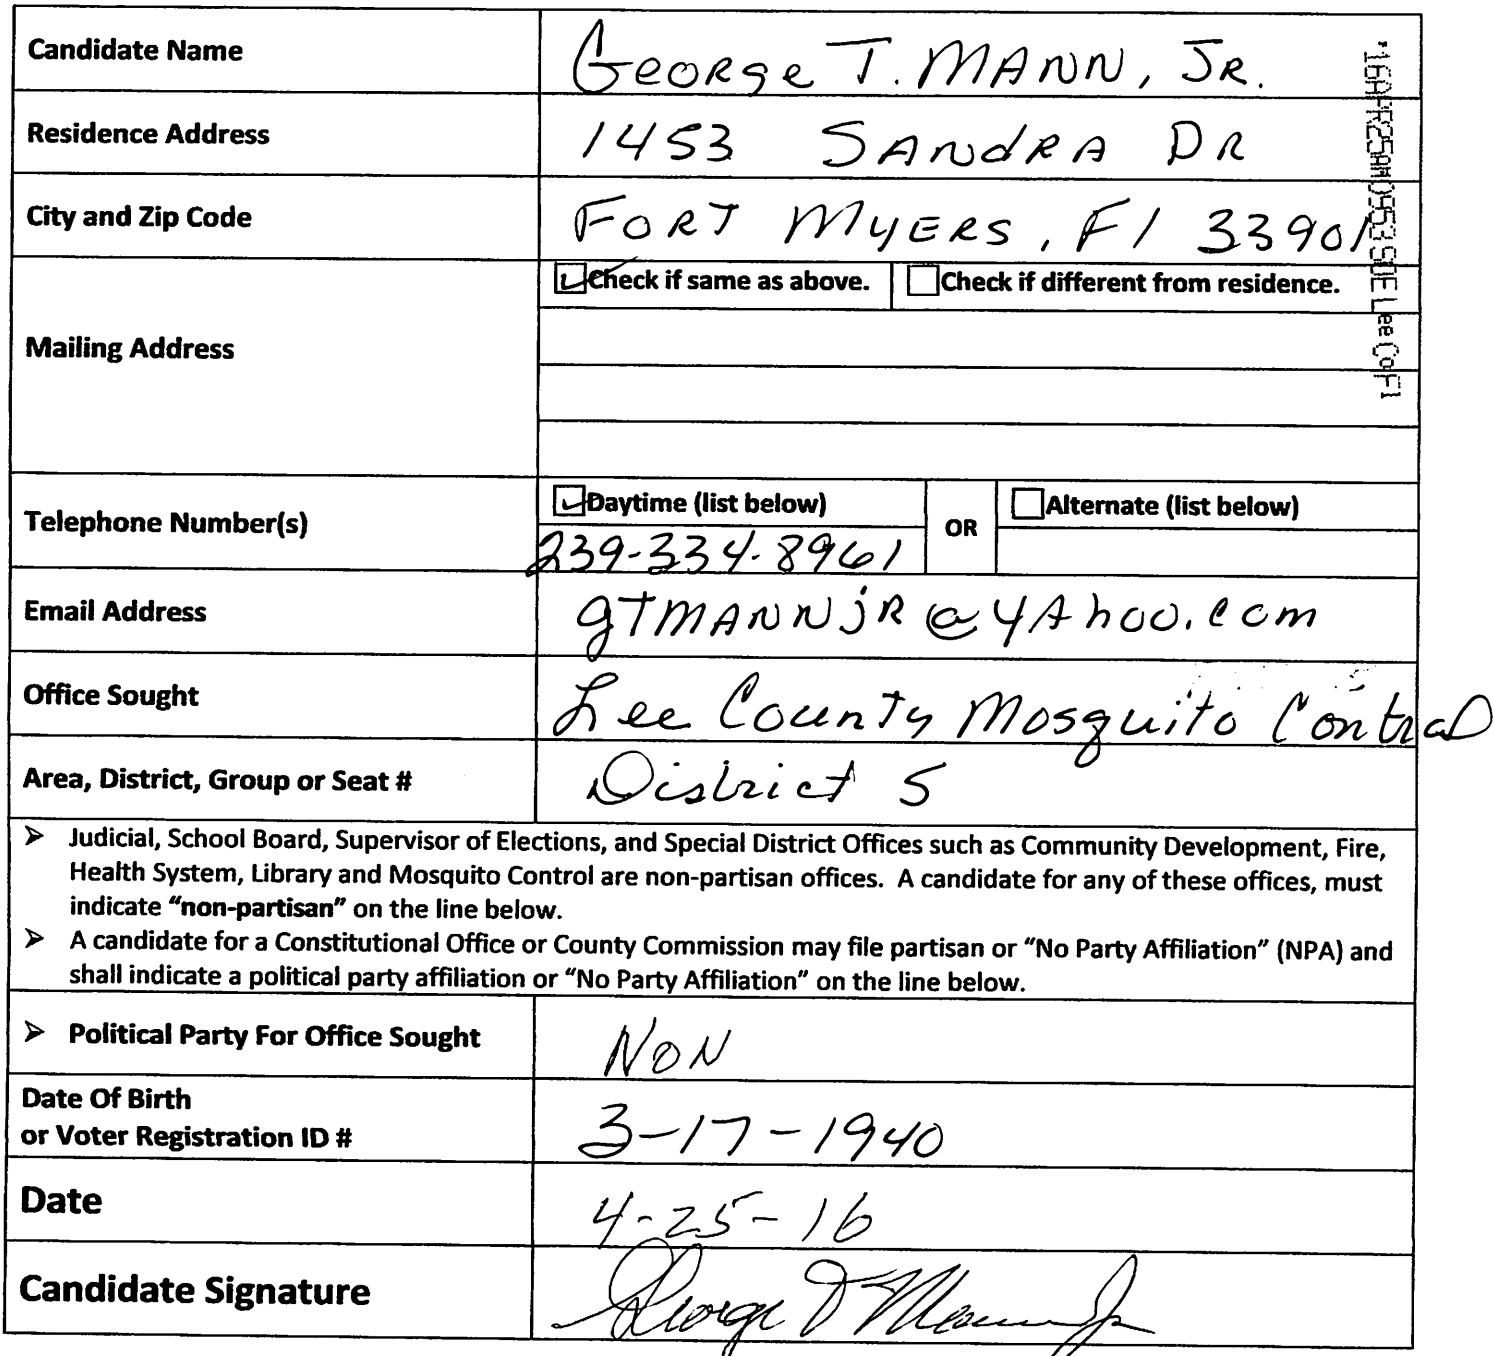 Candidate Name
George T. MANN, JR.
Residence Address
1453 SANdRA DR
City and Zip Code
FORT MYERS, Fl 33901
Mailing Address
Check if same as above.
Check if different from residence.
Telephone Number(s)
Daytime (list below)
239-334-8961
OR
Alternate (list below)
Email Address
gTMANNjR@yAhoo.com
Office Sought
Lee County Mosquito Control
Area, District, Group or Seat #
District 5
➢ Judicial, School Board, Supervisor of Elections, and Special District Offices such as Community Development, Fire,
Health System, Library and Mosquito Control are non-partisan offices. A candidate for any of these offices, must
indicate “non-partisan” on the line below.
➢ A candidate for a Constitutional Office or County Commission may file partisan or “No Party Affiliation” (NPA) and
shall indicate a political party affiliation or “No Party Affiliation” on the line below.
➢ Political Party For Office Sought
NON
Date Of Birth
or Voter Registration ID #
3-17-1940
Date
4-25-16
Candidate Signature
George T Mann Jr
'16APR25AM0953 SOE Lee Co Fl